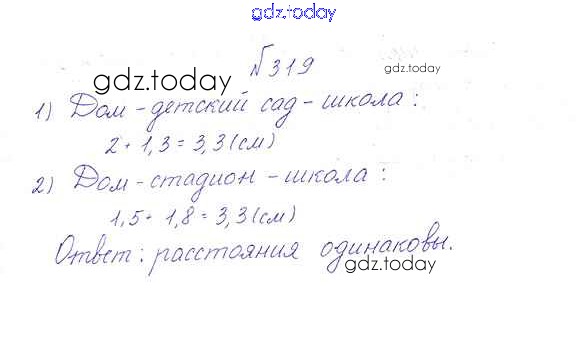 gdz.today
№319
gdz.today
gdz.today
1) Дом - детский сад - школа:
2 + 1,3 = 3,3 (см)
2) Дом - стадион - школа:
1,5 + 1,8 = 3,3 (см)
Ответ: расстояния одинаковы.
gdz.today